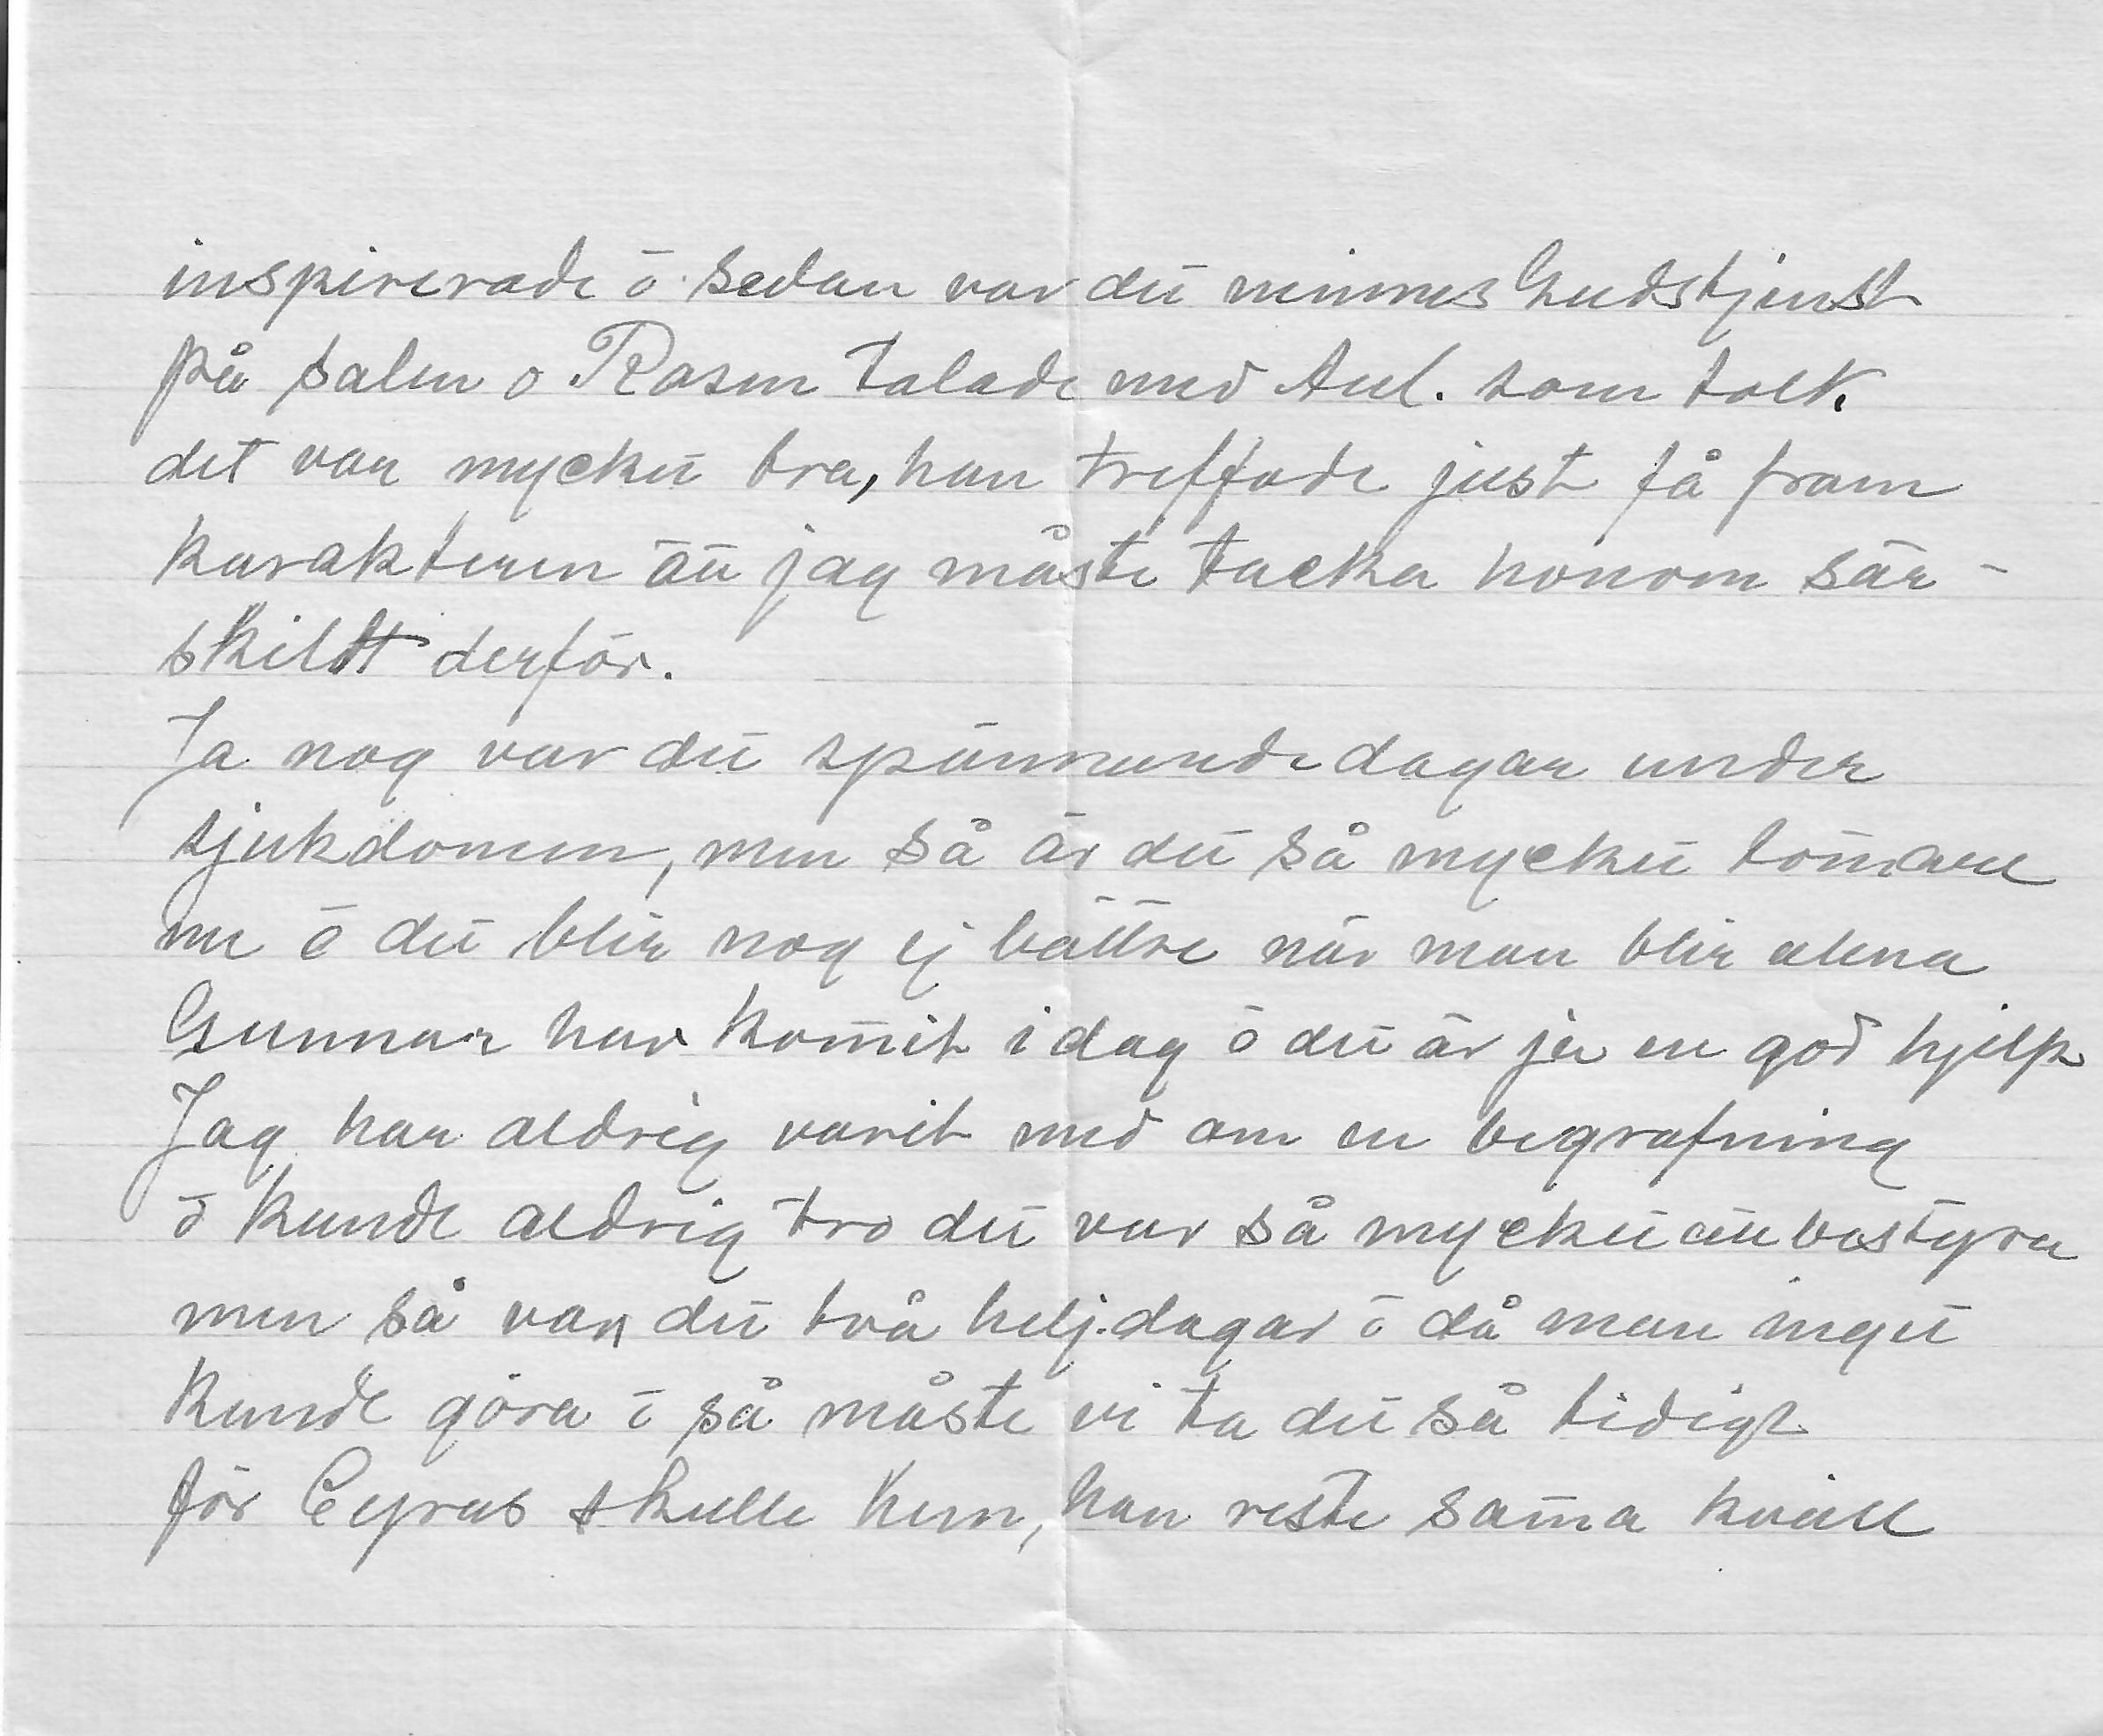 inspirerade ō sedan var det minnes Gudstjenst
på salen o Rosen talade med Aul. som tolk.
det var mycket bra, han treffade just få fram
karakteren att jag måste tacka honom sär-
skildt derför.
Ja nog var det spännande dagar under
sjukdomen, men så är det så mycket tom̄are
nu ō det blir nog ej bättre när man blir alena
Gunnar har kom̄it idag ō det är ju en god hjelp
Jag har aldrig varit med om en begrafning
ō kunde aldrig tro det var så mycket att bestyra
men så var det två helj.dagar ō då man inget
kunde göra ō så måste vi ta det så tidigt
för Cyrus skulle hem, han reste sam̄a kväll